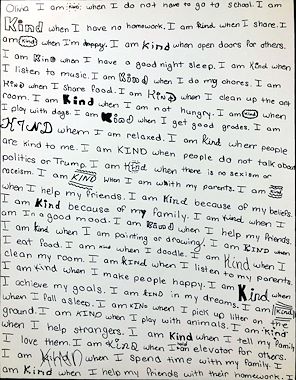 Olivia I am kind when I do not have to go to school. I am
Kind when I have no homework. I am kind when I share. I
am kind when I'm happy. I am kind when open doors for others.
I am Kind when I have a good night sleep. I am kind when
I listen to music. I am Kind when I do my chores. I am
Kind when I share food. I am Kind when I clean up the art
room. I am Kind when I am not hungry. I am kind when
I play with dogs. I am Kind when I get good grades. I am
KIND when I am relaxed. I am kind when people
are kind to me. I am KIND when people do not talk about
politics or Trump. I am kind when there is no sexism or
racism. I am KIND when I am with my parents. I am
when I help my friends. I am kind because of my beliefs.
I am Kind because of my family. I am kind when I
am In a good mood. I am Kind when I help my friends.
I am kind when I am painting or drawing. I am KIND when
I eat food. I am when I doodle. I am Kind when I
clean my room. I am KIND when I listen to my parents.
I am kind when I make people happy. I am Kind when
I achieve my goals. I am KIND in my dreams. I am kind
when I fall asleep. I am KIND when I pick up litter on the
ground. I am KIND when I play with animals. I am kind
when I help strangers. I am Kind when I tell my family
I love them. I am KIND when I an elevator for others.
I am kind when I spend time with my family. I
am Kind when I help my friends with their homework. I